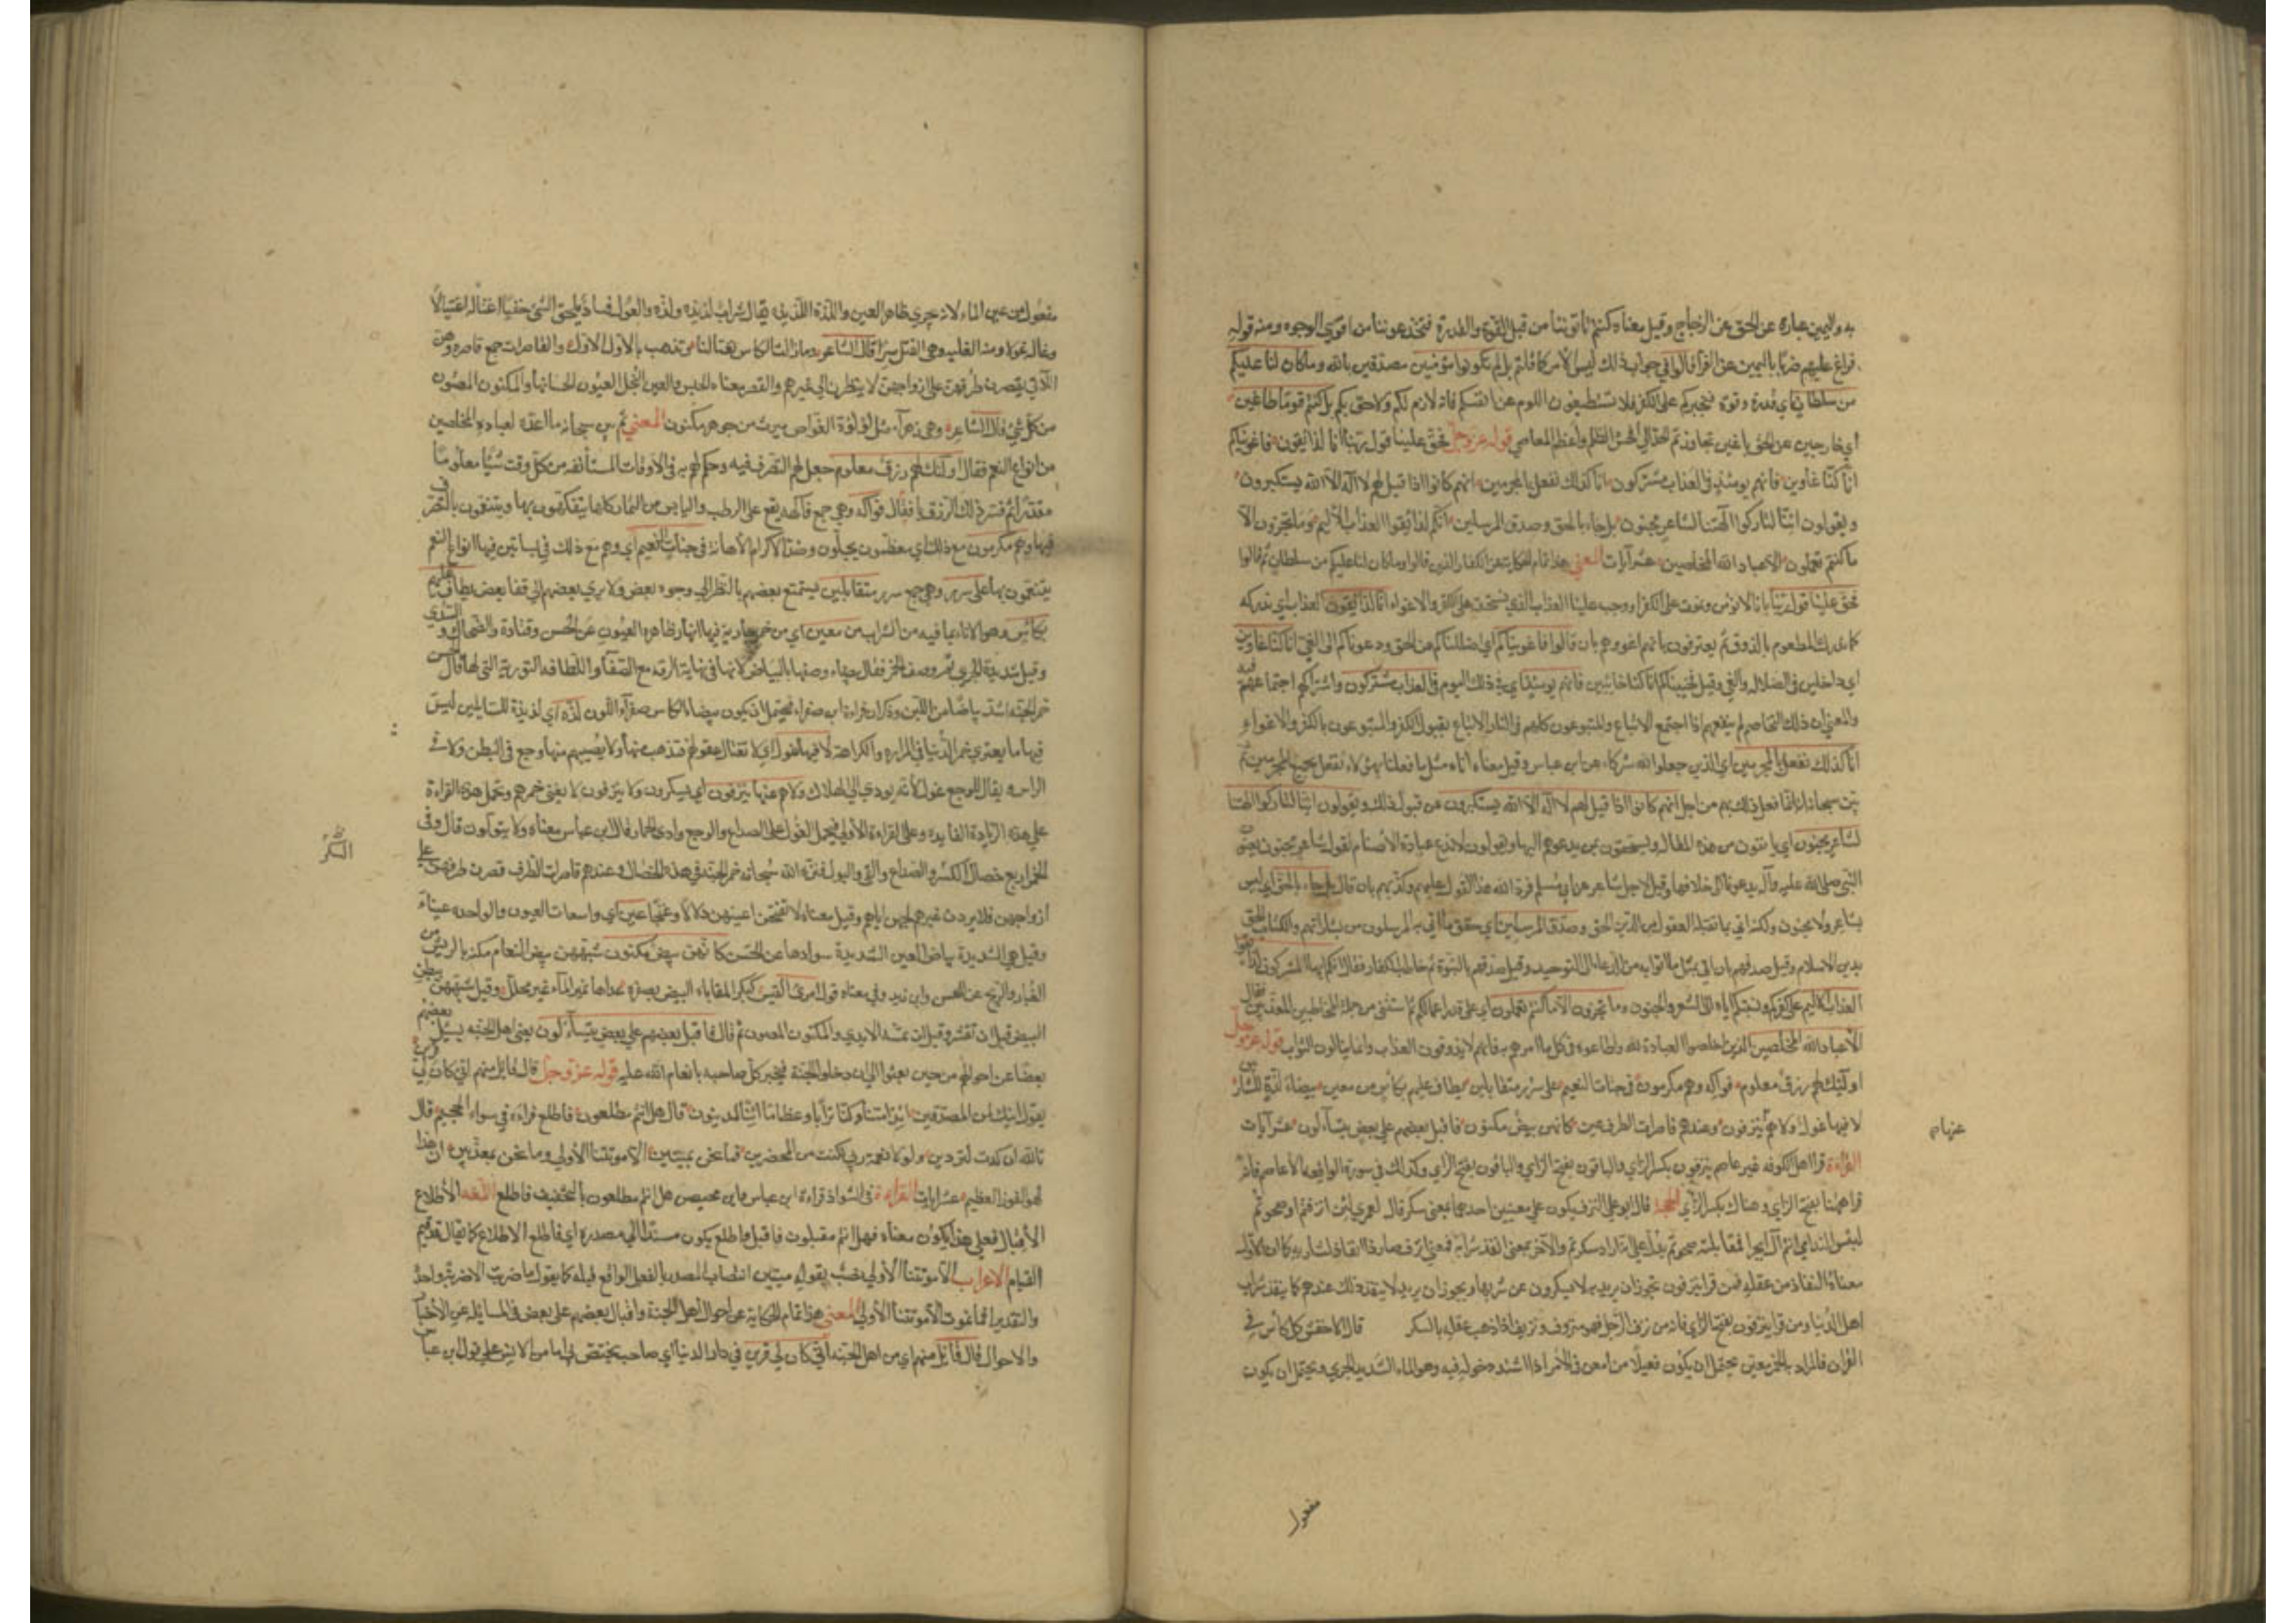 يد واليمين عبارة عن الحق عن الزجاج وقيل معناه كنتم تاتوننا من قبل القوة والقدرة فتخدعوننا من اقوى الوجوه ومنه قوله
فراغ عليهم ضربا باليمين عن الفرا قالوا في جواب ذلك ليس الأمر كما قلتم بل لم تكونوا مؤمنين مصدقين بالله وما كان لنا عليكم
من سلطان اي قدرة وقوة فنجبركم على الكفر فلا تسقطوا اللوم عن انفسكم فانه لازم لكم ولاحق بكم بل كنتم قوما طاغين
اي خارجين عن الحق باغين تجاوزتم الحد الى افحش الظلم واعظم المعاصي قوله عز وجل فحق علينا قول ربنا انا لذائقون فاغويناكم
انا كنا غاوين فانهم يومئذ في العذاب مشتركون انا كذلك نفعل بالمجرمين انهم كانوا اذا قيل لهم لا اله الا الله يستكبرون
ويقولون ائنا لتاركوا آلهتنا لشاعر مجنون بل جاء بالحق وصدق المرسلين انكم لذائقوا العذاب الاليم وما تجزون الا
ما كنتم تعملون الا عباد الله المخلصين عشر آيات المعنى هذا تمام الحكاية عن الكفار الذين قالوا وما كان لنا عليكم من سلطان ثم قالوا
فحق علينا قول ربنا بانا لا نؤمن ونموت على الكفر او وجب علينا العذاب الذي نستحقه على الكفر والاغواء انا لذائقون العذاب اي ندركه
كما ندرك المطعوم بالذوق ثم يعترفون بانهم اغووهم بان قالوا فاغويناكم اي اضللناكم عن الحق ودعوناكم الى الغي انا كنا غاوين
اي داخلين في الضلال والغي وقيل فخيبناكم انا كنا خائبين فانهم يومئذ اي في ذلك اليوم في العذاب مشتركون واشتراكهم اجتماعهم فيه
والمعنى ان ذلك التخاصم لم ينفعهم اذا اجتمع الاتباع والمتبوعون كلهم في النار الاتباع بقبول الكفر والمتبوعون بالكفر والاغواء
انا كذلك نفعل بالمجرمين اي الذين جعلوا لله شركاء عن ابن عباس وقيل معناه انا مثل ما فعلنا بهؤلاء نفعل بجميع المجرمين ثم
بين سبحانه انه انما فعل ذلك بهم من اجل انهم كانوا اذا قيل لهم لا اله الا الله يستكبرون عن قبول ذلك ويقولون ائنا لتاركوا آلهتنا
لشاعر مجنون اي يانفون من هذه المقالة ويستخفون بمن يدعوهم اليها ويقولون لا ندع عبادة الأصنام لقول شاعر مجنون يعنون
النبي صلى الله عليه وآله يدعونا الى خلافها وقيل لاجل شاعر عن ابي مسلم فرد الله هذا القول عليهم وكذبهم بان قال بل جاء بالحق اي ليس
بشاعر ولا مجنون ولكنه اتى بما تقبله العقول من الدين الحق وصدق المرسلين اي حقق ما اتى به المرسلون من بشاراتهم والكتاب الحق
بدين الاسلام وقيل صدقهم بان اتى بمثل ما اتوا به من الدعاء الى التوحيد وقيل صدقهم بالنبوة ثم خاطب الكفار فقال انكم ايها المشركون لذائقوا
العذاب الاليم على كفركم ونسبتكم اياه الى الشعر والجنون وما تجزون الا ما كنتم تعملون اي على قدر اعمالكم ثم استثنى من جملة المخاطبين المعذبين فقال
الا عباد الله المخلصين الذين اخلصوا العبادة لله واطاعوه في كل ما امرهم به فانهم لا يذوقون العذاب وانما ينالون الثواب قوله عز وجل
اولئك لهم رزق معلوم فواكه وهم مكرمون في جنات النعيم على سرر متقابلين يطاف عليهم بكأس من معين بيضاء لذة للشاربين
لا فيها غول ولا هم ينزفون وعندهم قاصرات الطرف عين كانهن بيض مكنون فاقبل بعضهم على بعض يتساءلون عشر آيات
عنها
القراءة قرا اهل الكوفة غير عاصم ينزفون بكسر الزاي والباقون بفتح الزاي وكذلك في سورة الواقعة الا عاصم فانه
قرا ههنا بفتح الزاي وهناك بكسر الزاي الحجة قال ابو علي انزف يكون على معنيين احدهما بمعنى سكر قال لعمري لئن انزفتم او صحوتم
لبئس الندامى انتم آل ابجرا فمقابلته صحوتم يدل على انه اراد سكرتم والآخر بمعنى انفد شرابه فمعنى انزف صار ذا انفاد لشرابه كما ان الاول
معناه النفاد من عقله فمن قرا ينزفون يجوز ان يريد به لا يسكرون عن شربها ويجوز ان يريد لا ينفد ذلك عندهم كما ينفد شراب
اهل الدنيا ومن قرا ينزفون بفتح الزاي فانه من نزف الرجل فهو منزوف ونزيف اذا ذهب عقله بالسكر قال الاخفش كل كأس في
القرآن فالمراد به الخمر معين يحتمل ان يكون فعيلا من امعن في الامر اذا اشتد دخوله فيه وهو الماء الشديد الجري ويحتمل ان يكون
مفعول
مفعولا من عين الماء لانه يجري ظاهر العين واللذة اللذيذة يقال شراب لذ ولذيذ والغول فساد يلحق الشيء خفيا اغتاله اغتيالا
وغاله غولا ومنه الغيلة وهي القتل سرا قال الشاعر وما زالت الكأس تغتالنا وتذهب بالاول الاول والقاصرات جمع قاصرة وهن
اللاتي يقصرن طرفهن على ازواجهن لا ينظرن الى غيرهم والقصر معناه الحبس والعين النجل العيون الحسانها والمكنون المصون
من كل شيء قال الشاعر وهي زهراء مثل لؤلؤة الغواص ميزت من جوهر مكنون المعنى ثم بين سبحانه ما اعده لعباده المخلصين
من انواع النعم فقال اولئك لهم رزق معلوم جعل لهم التصرف فيه وحكم لهم به في الاوقات المستأنفة من كل وقت شيئا معلوما
مقدرا ثم فسر ذلك الرزق بان قال فواكه وهي جمع فاكهة يقع على الرطب واليابس من الثمار كلها يتفكهون بها ويتنعمون بالتصرف
فيها وهم مكرمون مع ذلك اي معظمون مبجلون وضد الاكرام الاهانة في جنات النعيم اي وهم مع ذلك في بساتين فيها انواع النعم
يتنعمون بها على سرر وهي جمع سرير متقابلين يستمتع بعضهم بالنظر الى وجوه بعض ولا يرى بعضهم الى قفا بعض يطاف عليهم
بكأس وهو الاناء بما فيه من الشراب من معين اي من خمر جارية في انهار ظاهرة العيون عن الحسن وقتادة والضحاك والسدي
وقيل شديد الجري ثم وصف الخمر فقال بيضاء وصفها بالبياض لانها في نهاية الرقة مع الصفاء واللطافة النورية التي لها قال الحسن
خمر الجنة اشد بياضا من اللبن وذكر ان قراءة ابن صفراء فيحتمل ان يكون بيضاء الكأس صفراء اللون لذة اي لذيذة للشاربين ليس
فيها ما يعتري خمر الدنيا في المرارة والكراهة لا فيها غول اي لا تغتال عقولهم فتذهب بها ولا يصيبهم منها وجع في البطن ولا في
الراس ويقال للوجع غول لأنه يؤدي الى الهلاك ولا هم عنها ينزفون اي يسكرون ولا ينزفون لا يفنى خمرهم وتحمل هذه القراءة
على هذه الزيادة الفايدة وعلى القراءة الاولى فيحمل الغول على الصداع والوجع واذى الخمار قال ابن عباس معناه ولا يبولون قال وفي
الخمر اربع خصال السكر والصداع والقيء والبول فنزه الله سبحانه خمر الجنة عن هذه الخصال وعندهم قاصرات الطرف قصرن طرفهن على
السكر
ازواجهن فلا يردن غيرهم لحبهن اياهم وقيل معناه لا يفتحن اعينهن دلالا وغنجا عين اي واسعات العيون والواحدة عيناء
وقيل هي الشديدة بياض العين الشديدة سوادها عن الحسن كانهن بيض مكنون شبههن ببيض النعام مكنه بالريش من
الغبار والريح عن الحسن وابن زيد وفي معناه قول امرئ القيس كبكر المقاناة البياض بصفرة غذاها نمير الماء غير محلل وقيل شبههن ببطن
البيض قبل ان تقشر وقبل ان تمسه الايدي والمكنون المصون ثم قال فاقبل بعضهم على بعض يتساءلون يعني اهل الجنة يسئل بعضهم
بعضا عن احوالهم من حين بعثوا الى ان دخلوا الجنة فيخبر كل صاحبه بانعام الله عليه قوله عز وجل قال قائل منهم اني كان لي قرين
يقول ائنك لمن المصدقين ائذا متنا وكنا ترابا وعظاما ائنا لمدينون قال هل انتم مطلعون فاطلع فرآه في سواء الجحيم قال
تالله ان كدت لتردين ولولا نعمة ربي لكنت من المحضرين افما نحن بميتين الا موتتنا الأولى وما نحن بمعذبين ان هذا
لهو الفوز العظيم عشر ايات القراءة في الشواذ قراءة ابن عباس وابن محيصن هل انتم مطلعون بالتخفيف فاطلع اللغة الاطلاع
الاقبال فعلى هذا يكون معناه فهل انتم مقبلون فاقبل واطلع يكون مسندا الى مصدره اي فاطلع الاطلاع كما يقال قد قيم
القيام الاعراب الا موتتنا الأولى نصب بقوله ميتين انتصاب المصدر بالفعل الواقع قبله كما يقول ما ضربت الا ضربة واحدة
والتقدير افما نموت الا موتتنا الأولى المعنى هذا تمام الحكاية عن احوال اهل الجنة واقبال بعضهم على بعض في المسائلة عن الأخبار
والاحوال قال قائل منهم اي من اهل الجنة اني كان لي قرين في دار الدنيا اي صاحب يختص بي اما من الانس على قول ابن عباس